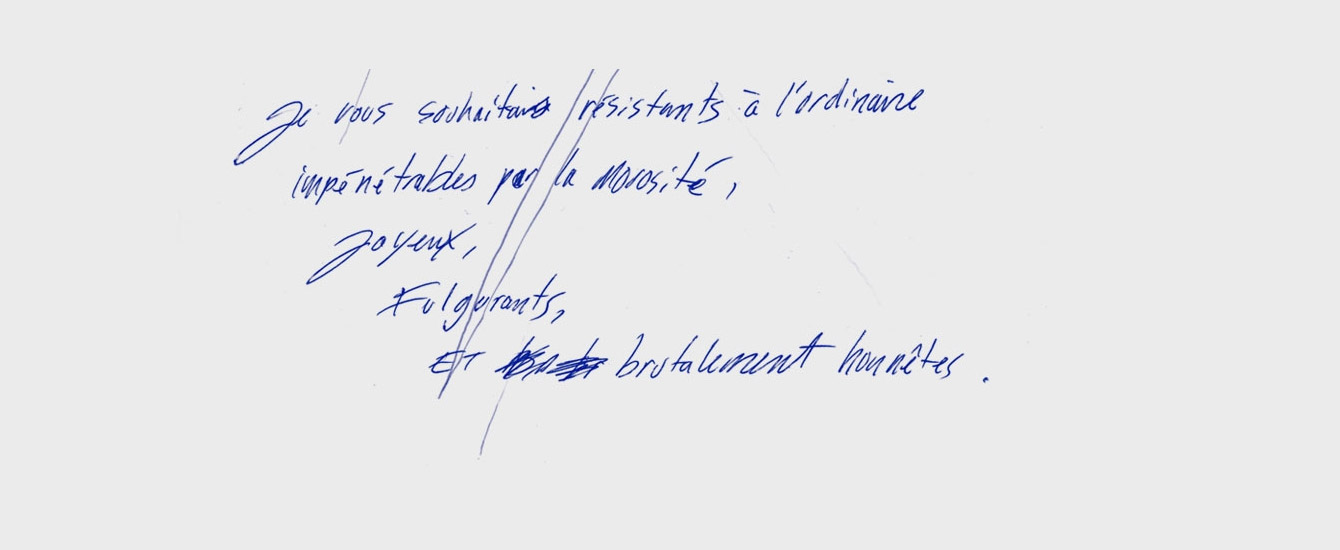 Je vous souhaitais résistants à l'ordinaire
impénétrables par la morosité,
Joyeux,
Fulgurants,
ET brutalement honnêtes.